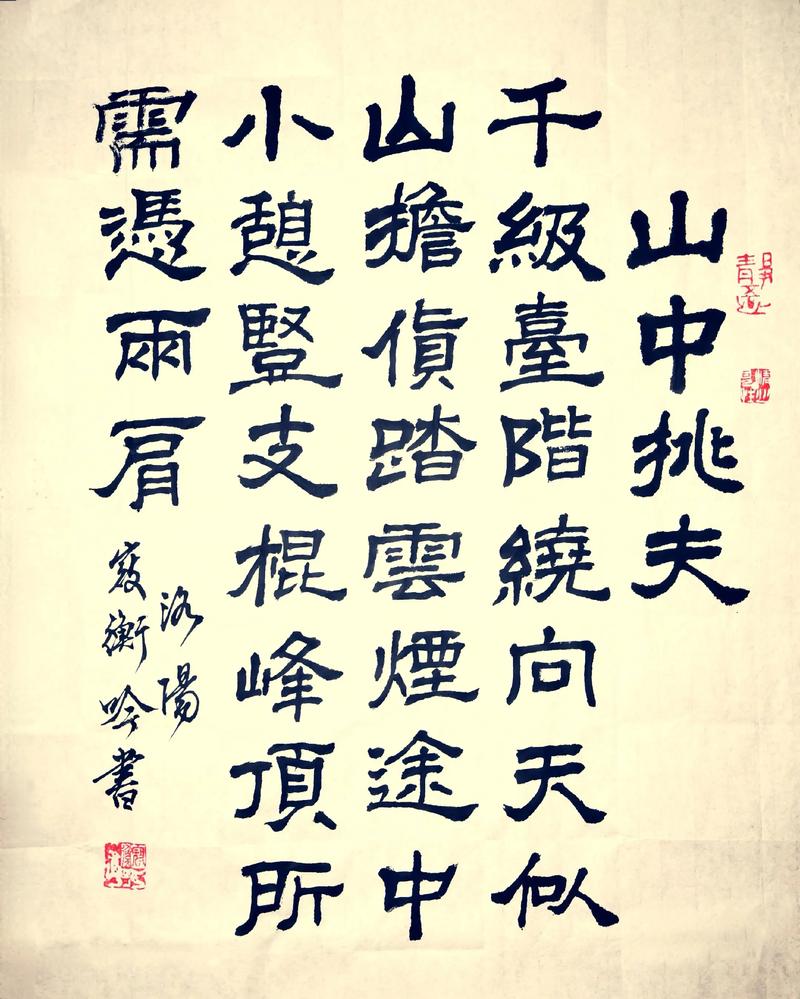 山中挑夫
千級臺階繞向天似
山擔貨踏雲煙途中
小憩豎支棍峰頂所
需憑兩肩
洛陽
衡吟書